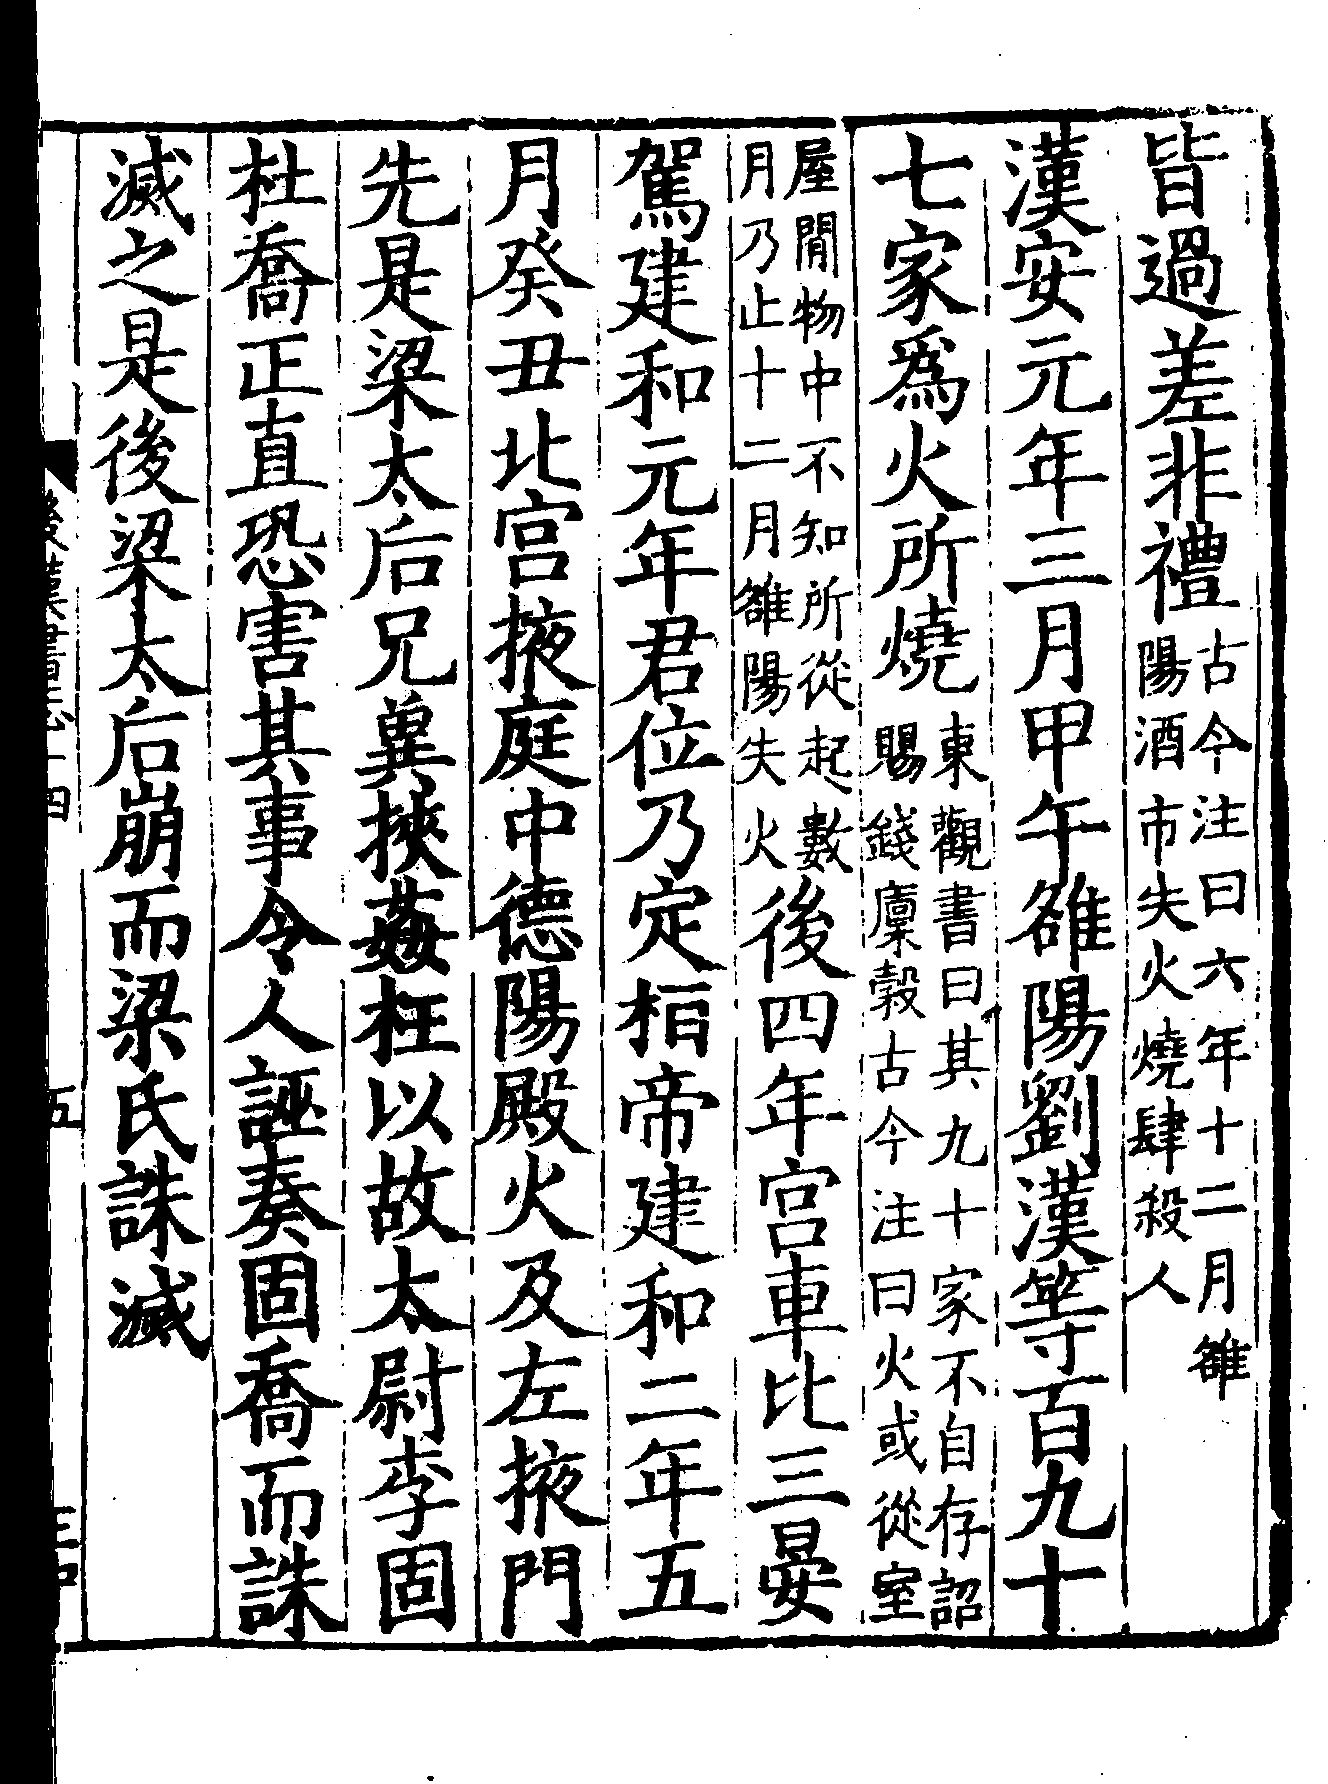 皆過差非禮古今注曰六年十二月雒陽酒市失火燒肆殺人
漢安元年三月甲午雒陽劉漢等百九十
七家爲火所燒東觀書曰其九十家不自存詔賜錢廩穀古今注曰火或從室
屋閒物中不知所從起數月乃止十二月雒陽失火後四年宮車比三晏
駕建和元年君位乃定桓帝建和二年五
月癸丑北宮掖庭中德陽殿火及左掖門
先是梁太后兄兾挾姦枉以故太尉李固
杜喬正直恐害其事令人誣奏固喬而誅
滅之是後梁太后崩而梁氏誅滅
後漢書志十四
五